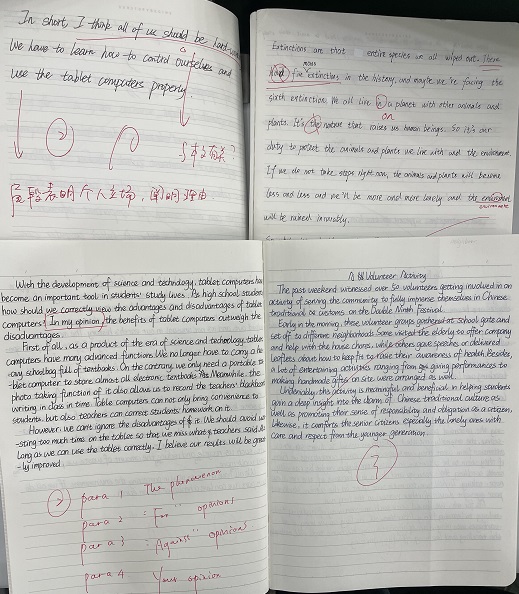 In short I think all of us should be hard-
We have to learn how to control ourselves and
use the tablet computers properly.
②
与本文有关?
尾段表明个人立场,阐明理由
Extinctions are that entire species are all wiped out. There
had five mass extinctions in the history, and maybe we're facing the
sixth extinction. We all live in on a planet with other animals and
plants. It's the nature that raises us human beings. So it's our
duty to protect the animals and plants we live with and the environment.
If we do not take steps right now, the animals and plants will become
less and less and we'll be more and more lonely and the
environment
will be ruined
With the development of science and technology, tablet computers have
become an important tool in students' study lives. As high school student
how should we correctly view the advantages and disadvantages of tablet
computers? In my opinion, the benefits of tablet computers outweigh the
disadvantages.
First of all, as a product of the era of science and technology, tablet
computers have many advanced functions. We no longer have to carry a he
-avy schoolbag full of textbooks. On the contrary, we only need a portable ta
-blet computer to store almost all electronic textbooks. Meanwhile, the
photo taking function of it also allows us to record the teachers' blackboard
writing in class in time. Table computers can not only bring convenience to
students, but also teachers can correct students' homework on it.
However, we can't ignore the disadvantages of it. We should avoid wa
-sting too much time on the tablets so that we miss what teachers said. As
long as we can use the tablets correctly, I believe our results will be great
-ly improved.
② para 1 The phenomenon
para 2 : "For" opinions
para 3 : "Against" opinions
para 4 Your opinion
A Volunteer Activity
The past weekend witnessed over 50 volunteers getting involved in an
activity of serving the community to fully immerse themselves in Chinese
traditional customs on the Double Ninth Festival.
Early in the morning, these volunteer groups gathered at school gate and
set off to different neighborhoods. Some visited the elderly to offer company
and help with the house chores, while others gave speeches or delivered
leaflets about how to keep fit to raise their awareness of health. Besides,
a lot of entertaining activities ranging from giving performances to
making handmade gifts on site were arranged as well.
Undeniably, this activity is meaningful and beneficial in helping students
gain a deep insight into the charm of Chinese traditional culture as
well as promoting their sense of responsibility and obligation as a citizen.
Likewise, it comforts the senior citizens especially the lonely ones with
care and respect from the younger generation.
③